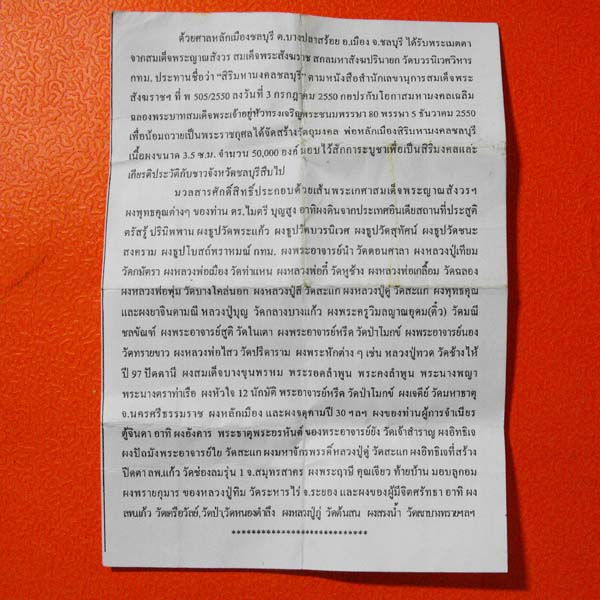 ด้วยศาลหลักเมืองชลบุรี ต.บางปลาสร้อย อ.เมือง จ.ชลบุรี ได้รับพระเมตตา
จากสมเด็จพระญาณสังวร สมเด็จพระสังฆราช สกลมหาสังฆปรินายก วัดบวรนิเวศวิหาร
กทม. ประทานชื่อว่า "สิริมหามงคลชลบุรี" ตามหนังสือสำนักเลขานุการสมเด็จพระ
สังฆราชฯ ที่ พ 505/2550 ลงวันที่ 3 กรกฎาคม 2550 กอปรกับโอกาสมหามงคลเฉลิม
ฉลองพระบาทสมเด็จพระเจ้าอยู่หัวทรงเจริญพระชนมพรรษา 80 พรรษา 5 ธันวาคม 2550
เพื่อน้อมถวายเป็นพระราชกุศลได้จัดสร้างวัตถุมงคล พ่อหลักเมืองสิริมหามงคลชลบุรี
เนื้อผงขนาด 3.5 ซ.ม. จำนวน 50,000 องค์ มอบไว้สักการะบูชาเพื่อเป็นสิริมงคลและ
เกียรติประวัติกับชาวจังหวัดชลบุรีสืบไป
มวลสารศักดิ์สิทธิ์ประกอบด้วยเส้นพระเกศาสมเด็จพระญาณสังวรฯ
ผงพุทธคุณต่างๆ ของท่าน ดร.ไมตรี บุญสูง อาทิผงดินจากประเทศอินเดียสถานที่ประสูติ
ตรัสรู้ ปรินิพพาน ผงธูปวัดพระแก้ว ผงธูปวัดบวรนิเวศ ผงธูปวัดสุทัศน์ ผงธูปวัดชนะ
สงคราม ผงธูปโบสถ์พราหมณ์ กทม. ผงพระอาจารย์นำ วัดดอนศาลา ผงหลวงปู่เทียม
วัดกษัตรา ผงหลวงพ่อเมือง วัดท่าแหน ผงหลวงพ่อกี๋ วัดหูช้าง ผงหลวงพ่อเกลื้อม วัดฉลอง
ผงหลวงพ่อพุ่ม วัดบางโคล่นอก ผงหลวงปู่สี วัดสะแก ผงหลวงปู่ดู่ วัดสะแก ผงพุทธคุณ
และผงยาจินดามณี หลวงปู่บุญ วัดกลางบางแก้ว ผงพระครูวิมลญาณอุดม(ติ๋ว) วัดมณี
ชลขัณฑ์ ผงพระอาจารย์สูติ วัดในเตา ผงพระอาจารย์หรีด วัดป่าโมกข์ ผงพระอาจารย์นอง
วัดทรายขาว ผงหลวงพ่อไสว วัดปรีดาราม ผงพระหักต่าง ๆ เช่น หลวงปู่ทวด วัดช้างให้
ปี 97 ปัตตานี ผงสมเด็จบางขุนพรหม พระรอดลำพูน พระคงลำพูน พระนางพญา
พระนางตราท่าเรือ ผงหัวใจ 12 นักษัติ พระอาจารย์หรีด วัดป่าโมกข์ ผงเจดีย์ วัดมหาธาตุ
จ.นครศรีธรรมราช ผงหลักเมือง และผงจตุคามปี 30 ฯลฯ ผงของท่านผู้การจำเนียร
ตู้จินดา อาทิ ผงอังคาร พระธาตุพระอรหันต์ ของพระอาจารย์ยัง วัดเจ้าสำราญ ผงอิทธิเจ
ผงปัถมังพระอาจารย์ใย วัดสะแก ผงมหาจักรพรรดิ์หลวงปู่ดู่ วัดสะแก ผงอิทธิเจที่สร้าง
ปิดตา ลพ.แก้ว วัดช่องลมรุ่น 1 จ.สมุทรสาคร ผงพระฤาษี คุณเจียว ท้ายบ้าน มอบลูกอม
ผงพรายกุมาร ของหลวงปู่ทิม วัดระหารไร่ จ.ระยอง และผงของผู้มีจิตศรัทธา อาทิ ผง
ลพ.แก้ว วัดเครือวัลย์, วัดป่า,วัดหนองตำลึง ผงหลวงปู่ภู่ วัดต้นสน ผงสรงน้ำ วัดเขาบางทรายฯลฯ
****************************